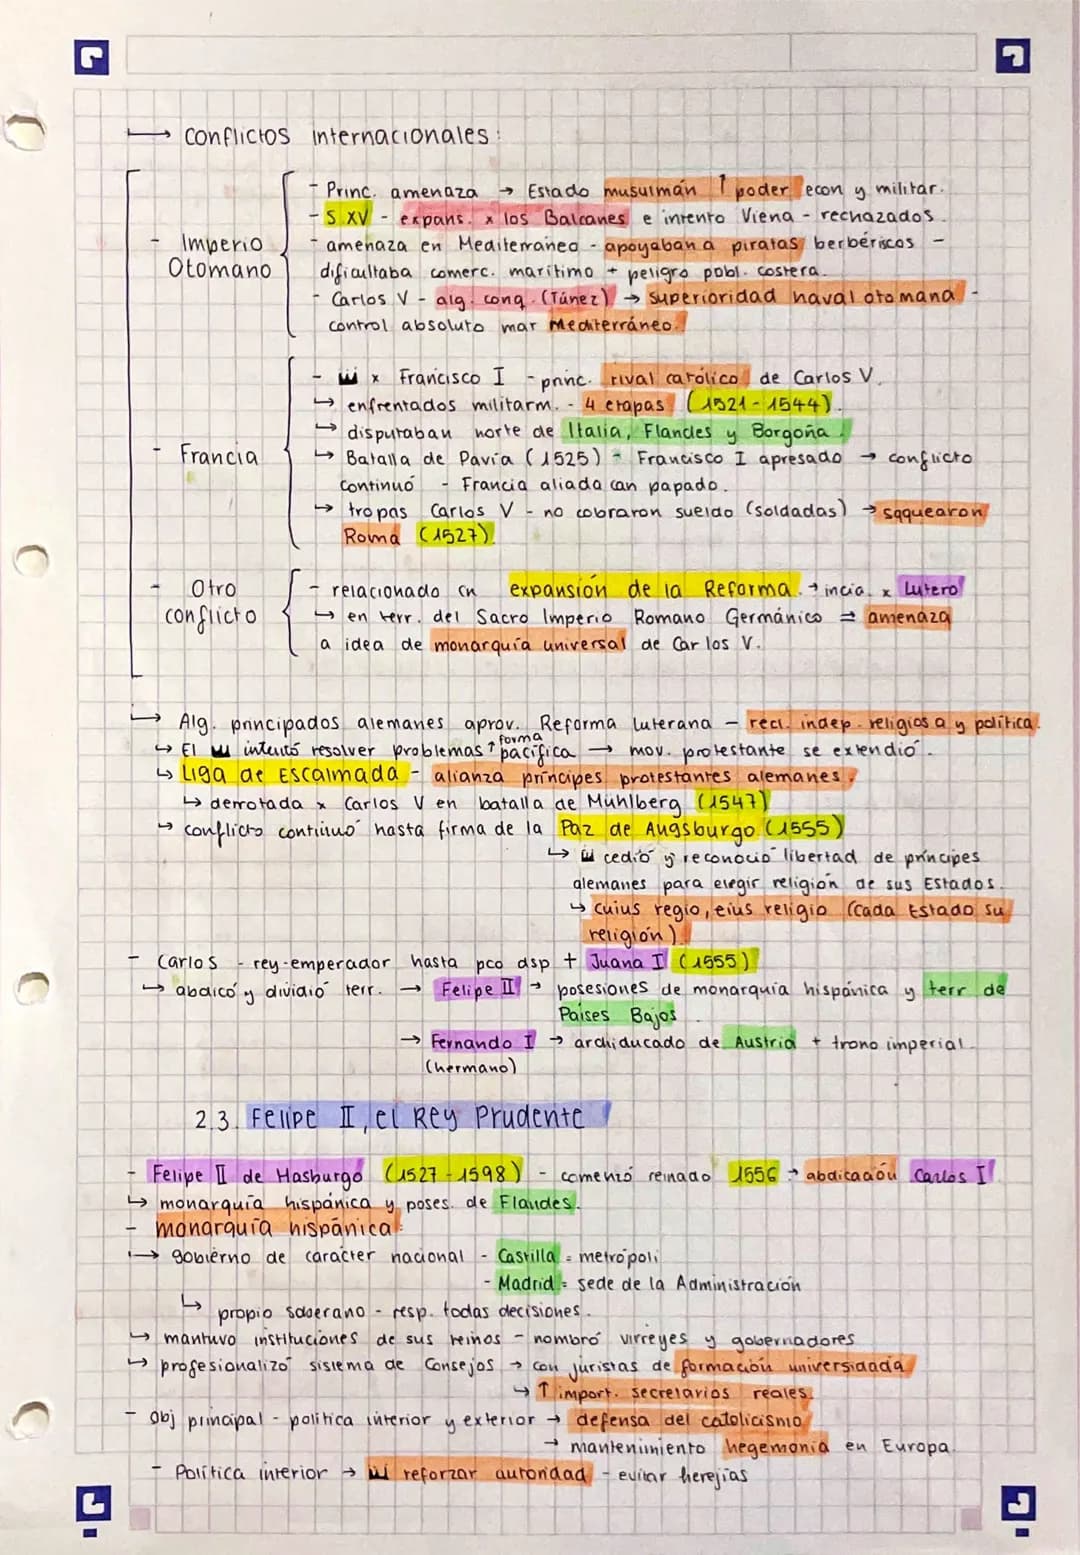 → Conflictos internacionales:
- Princ. amenaza → Estado musulmán ↑ poder econ y militar.
- S XV - expans. x los Balcanes e intento Viena - rechazados.
- Imperio Otomano
- amenaza en Mediterráneo - apoyaban a piratas berbéricos -
dificultaba comerc. marítimo + peligro pobl. costera.
- Carlos V - alg. conq. (Túnez) → superioridad naval otomana -
control absoluto mar Mediterráneo.
- x Francisco I - princ. rival católico de Carlos V.
↳ enfrentados militarm. - 4 etapas (1521-1544).
↳ disputaban norte de Italia, Flandes y Borgoña.
- Francia
↳ Batalla de Pavía (1525) - Francisco I apresado → conflicto
continuó - Francia aliada can papado.
↳ tropas Carlos V - no cobraron sueldo (soldadas) → saquearon
Roma (1527).
- Otro conflicto
- relacionado cn expansión de la Reforma. → incia. x Lutero
↳ en terr. del Sacro Imperio Romano Germánico = amenaza
a idea de monarquía universal de Carlos V.
↳ Alg. principados alemanes aprov. Reforma luterana - recl. indep. religiosa y política.
↳ El intentó resolver problemas ↑ forma pacífica → mov. protestante se extendió.
↳ Liga de Escalmada - alianza príncipes protestantes alemanes.
↳ derrotada x Carlos V en batalla de Mühlberg (1547)
↳ conflicto continuó hasta firma de la Paz de Augsburgo (1555)
↳ cedió y reconoció libertad de príncipes
alemanes para elegir religión de sus Estados.
↳ cuius regio, eius religio (Cada Estado su
religión).
- Carlos - rey-emperador hasta pco dsp + Juana I (1555)
↳ abdicó y dividió terr. → Felipe II → posesiones de monarquía hispánica y terr de
Países Bajos.
→ Fernando I → archiducado de Austria + trono imperial.
(hermano)
2.3. Felipe II, el Rey Prudente
- Felipe II de Hasburgo (1527-1598) - comenzó reinado 1556 → abdicación Carlos I
↳ monarquía hispánica y poses. de Flandes.
- monarquía hispánica:
↳ gobierno de carácter nacional - Castilla = metrópoli
- Madrid = sede de la Administración
↳ propio soberano - resp. todas decisiones.
↳ mantuvo instituciones de sus reinos - nombró virreyes y gobernadores
↳ profesionalizó sistema de Consejos → con juristas de formación universidada
↳ ↑ import. secretarios reales.
- Obj principal - política interior y exterior → defensa del catolicismo
→ mantenimiento hegemonía en Europa.
- Política interior → reforzar autoridad - evitar herejías